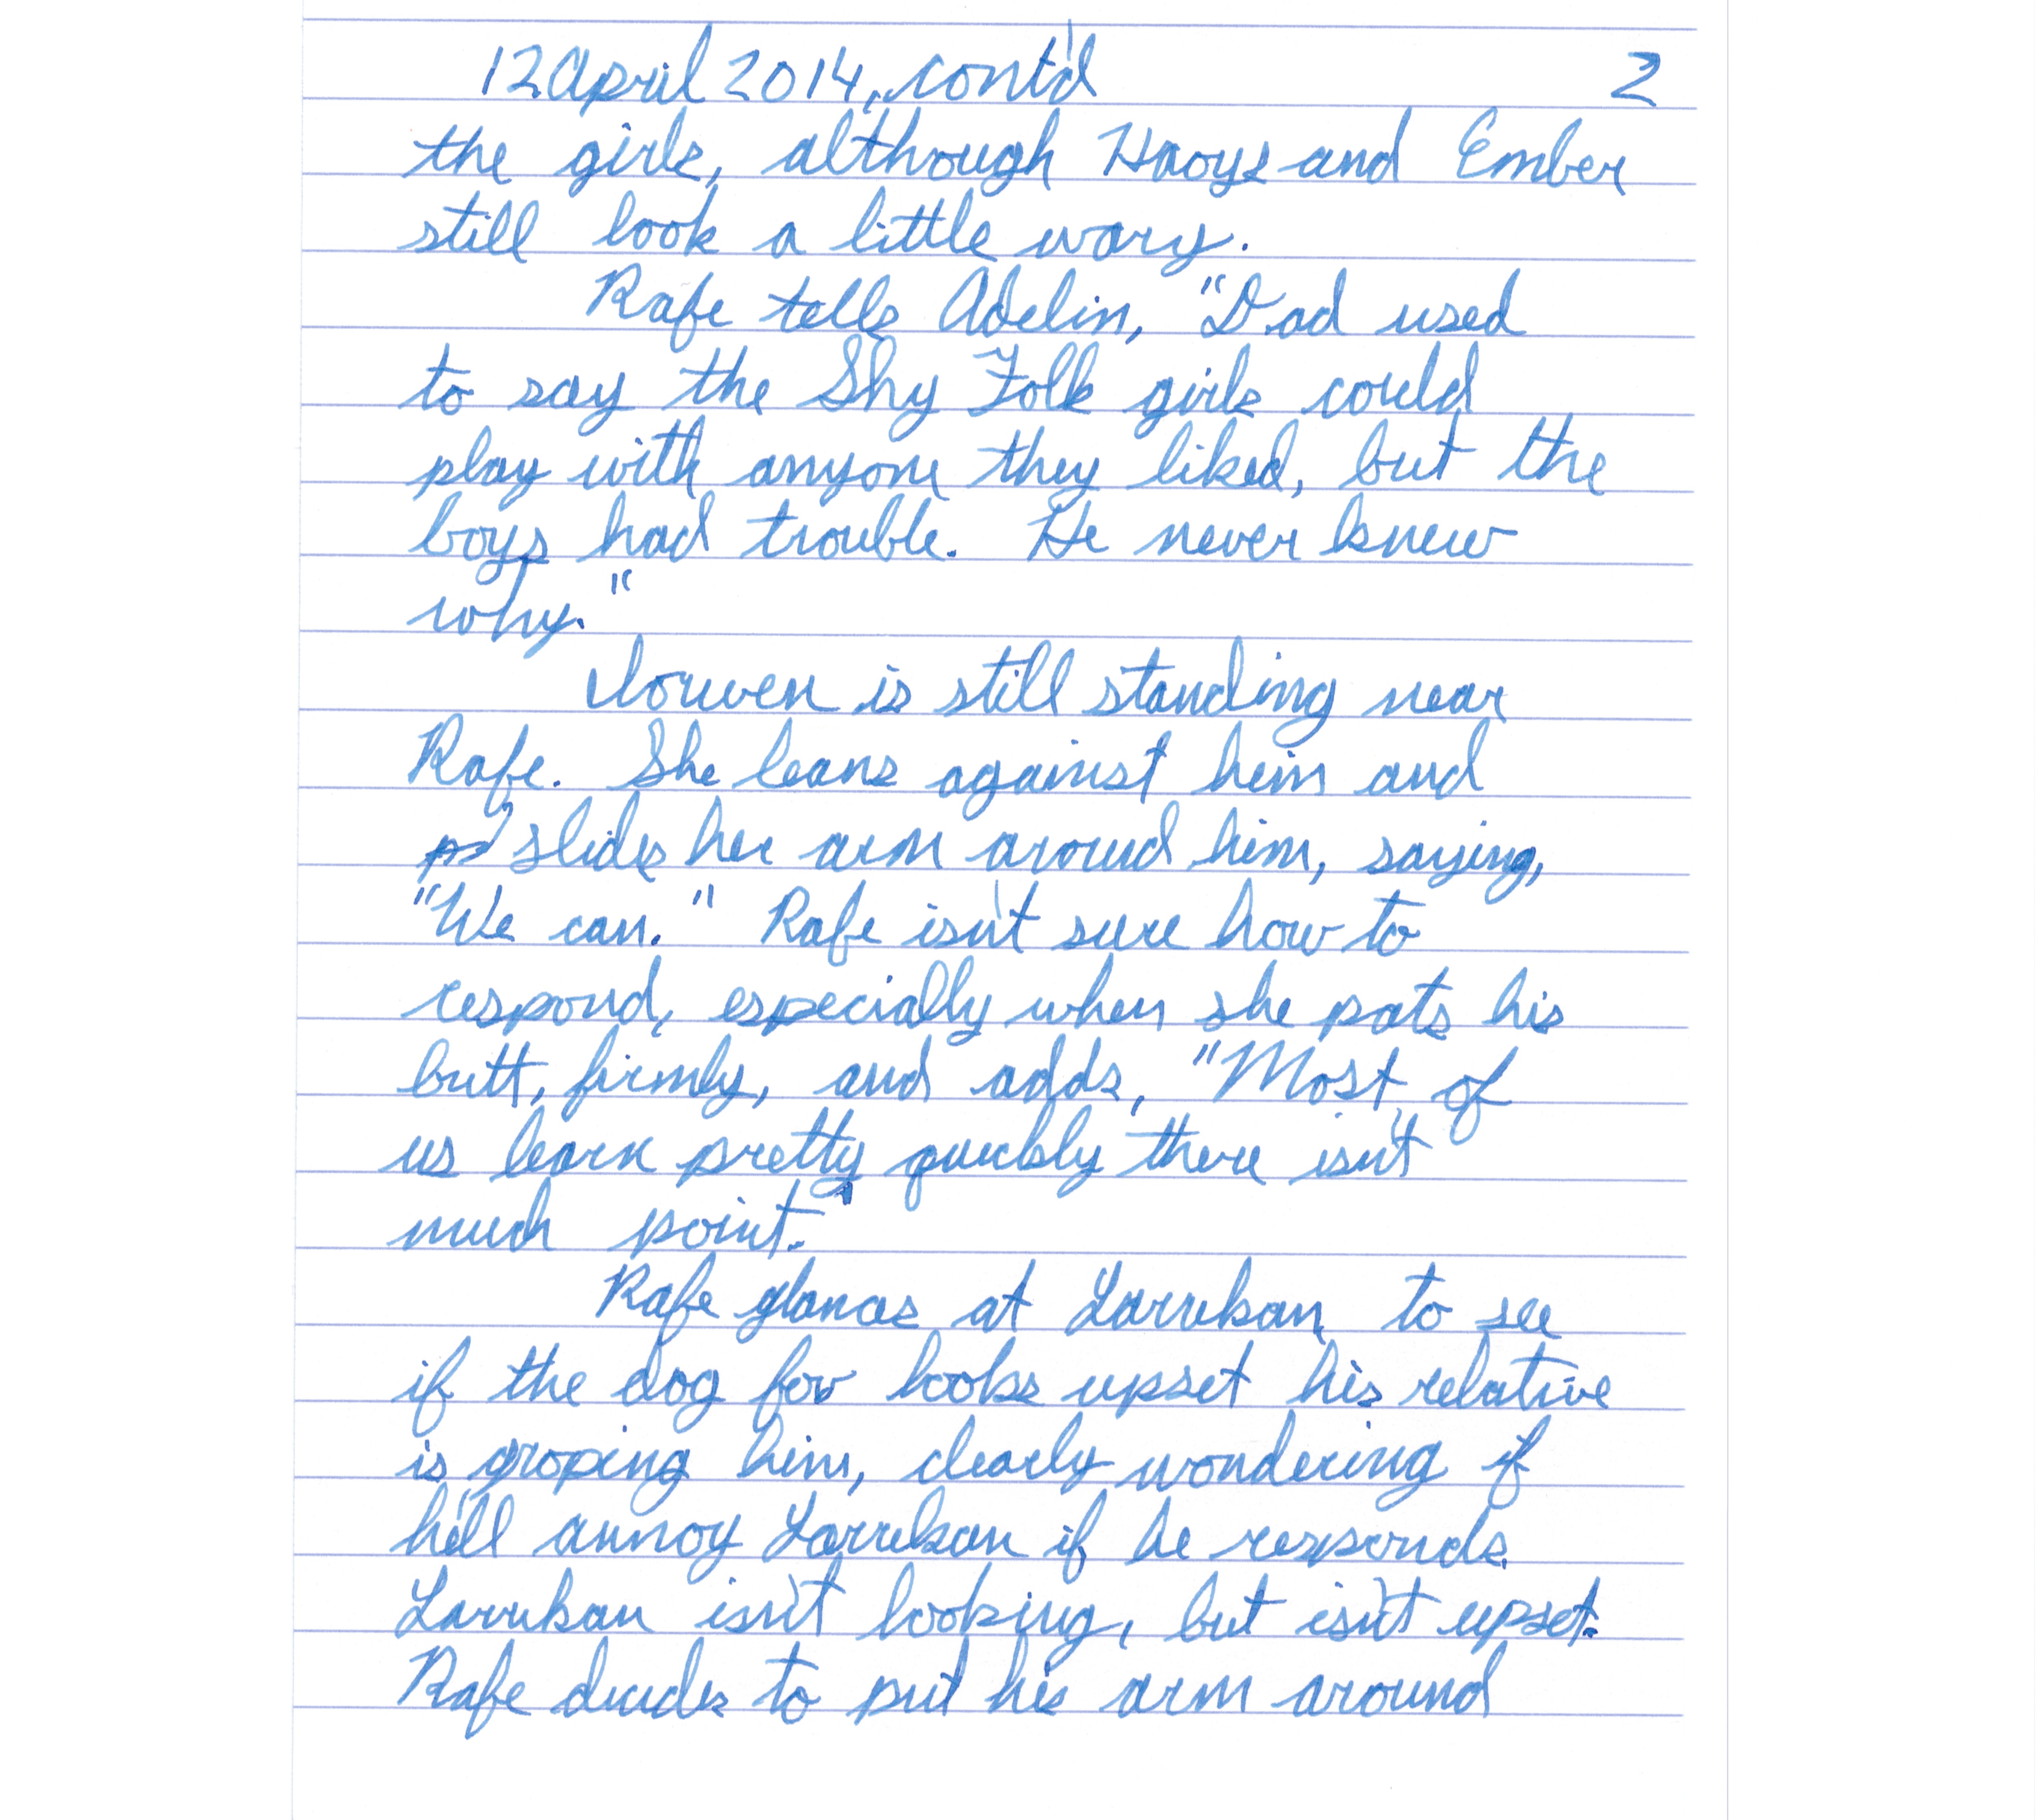 12 April 2014, cont'd 2
the girls, although Haoys and Ember
still look a little wary.
Rafe tells Adelin, "Dad used
to say the Shy Folk girls could
play with anyone they liked, but the
boys had trouble. He never knew
why."
Iouven is still standing near
Rafe. She leans against him and
slides her arm around him, saying,
"We can." Rafe isn't sure how to
respond, especially when she pats his
butt, firmly, and adds, "Most of
us learn pretty quickly there isn't
much point."
Rafe glances at Larrekan to see
if the dog fov looks upset his relative
is groping him, clearly wondering if
he'll annoy Larrekan if he responds.
Larrekan isn't looking, but isn't upset.
Rafe decides to put his arm around